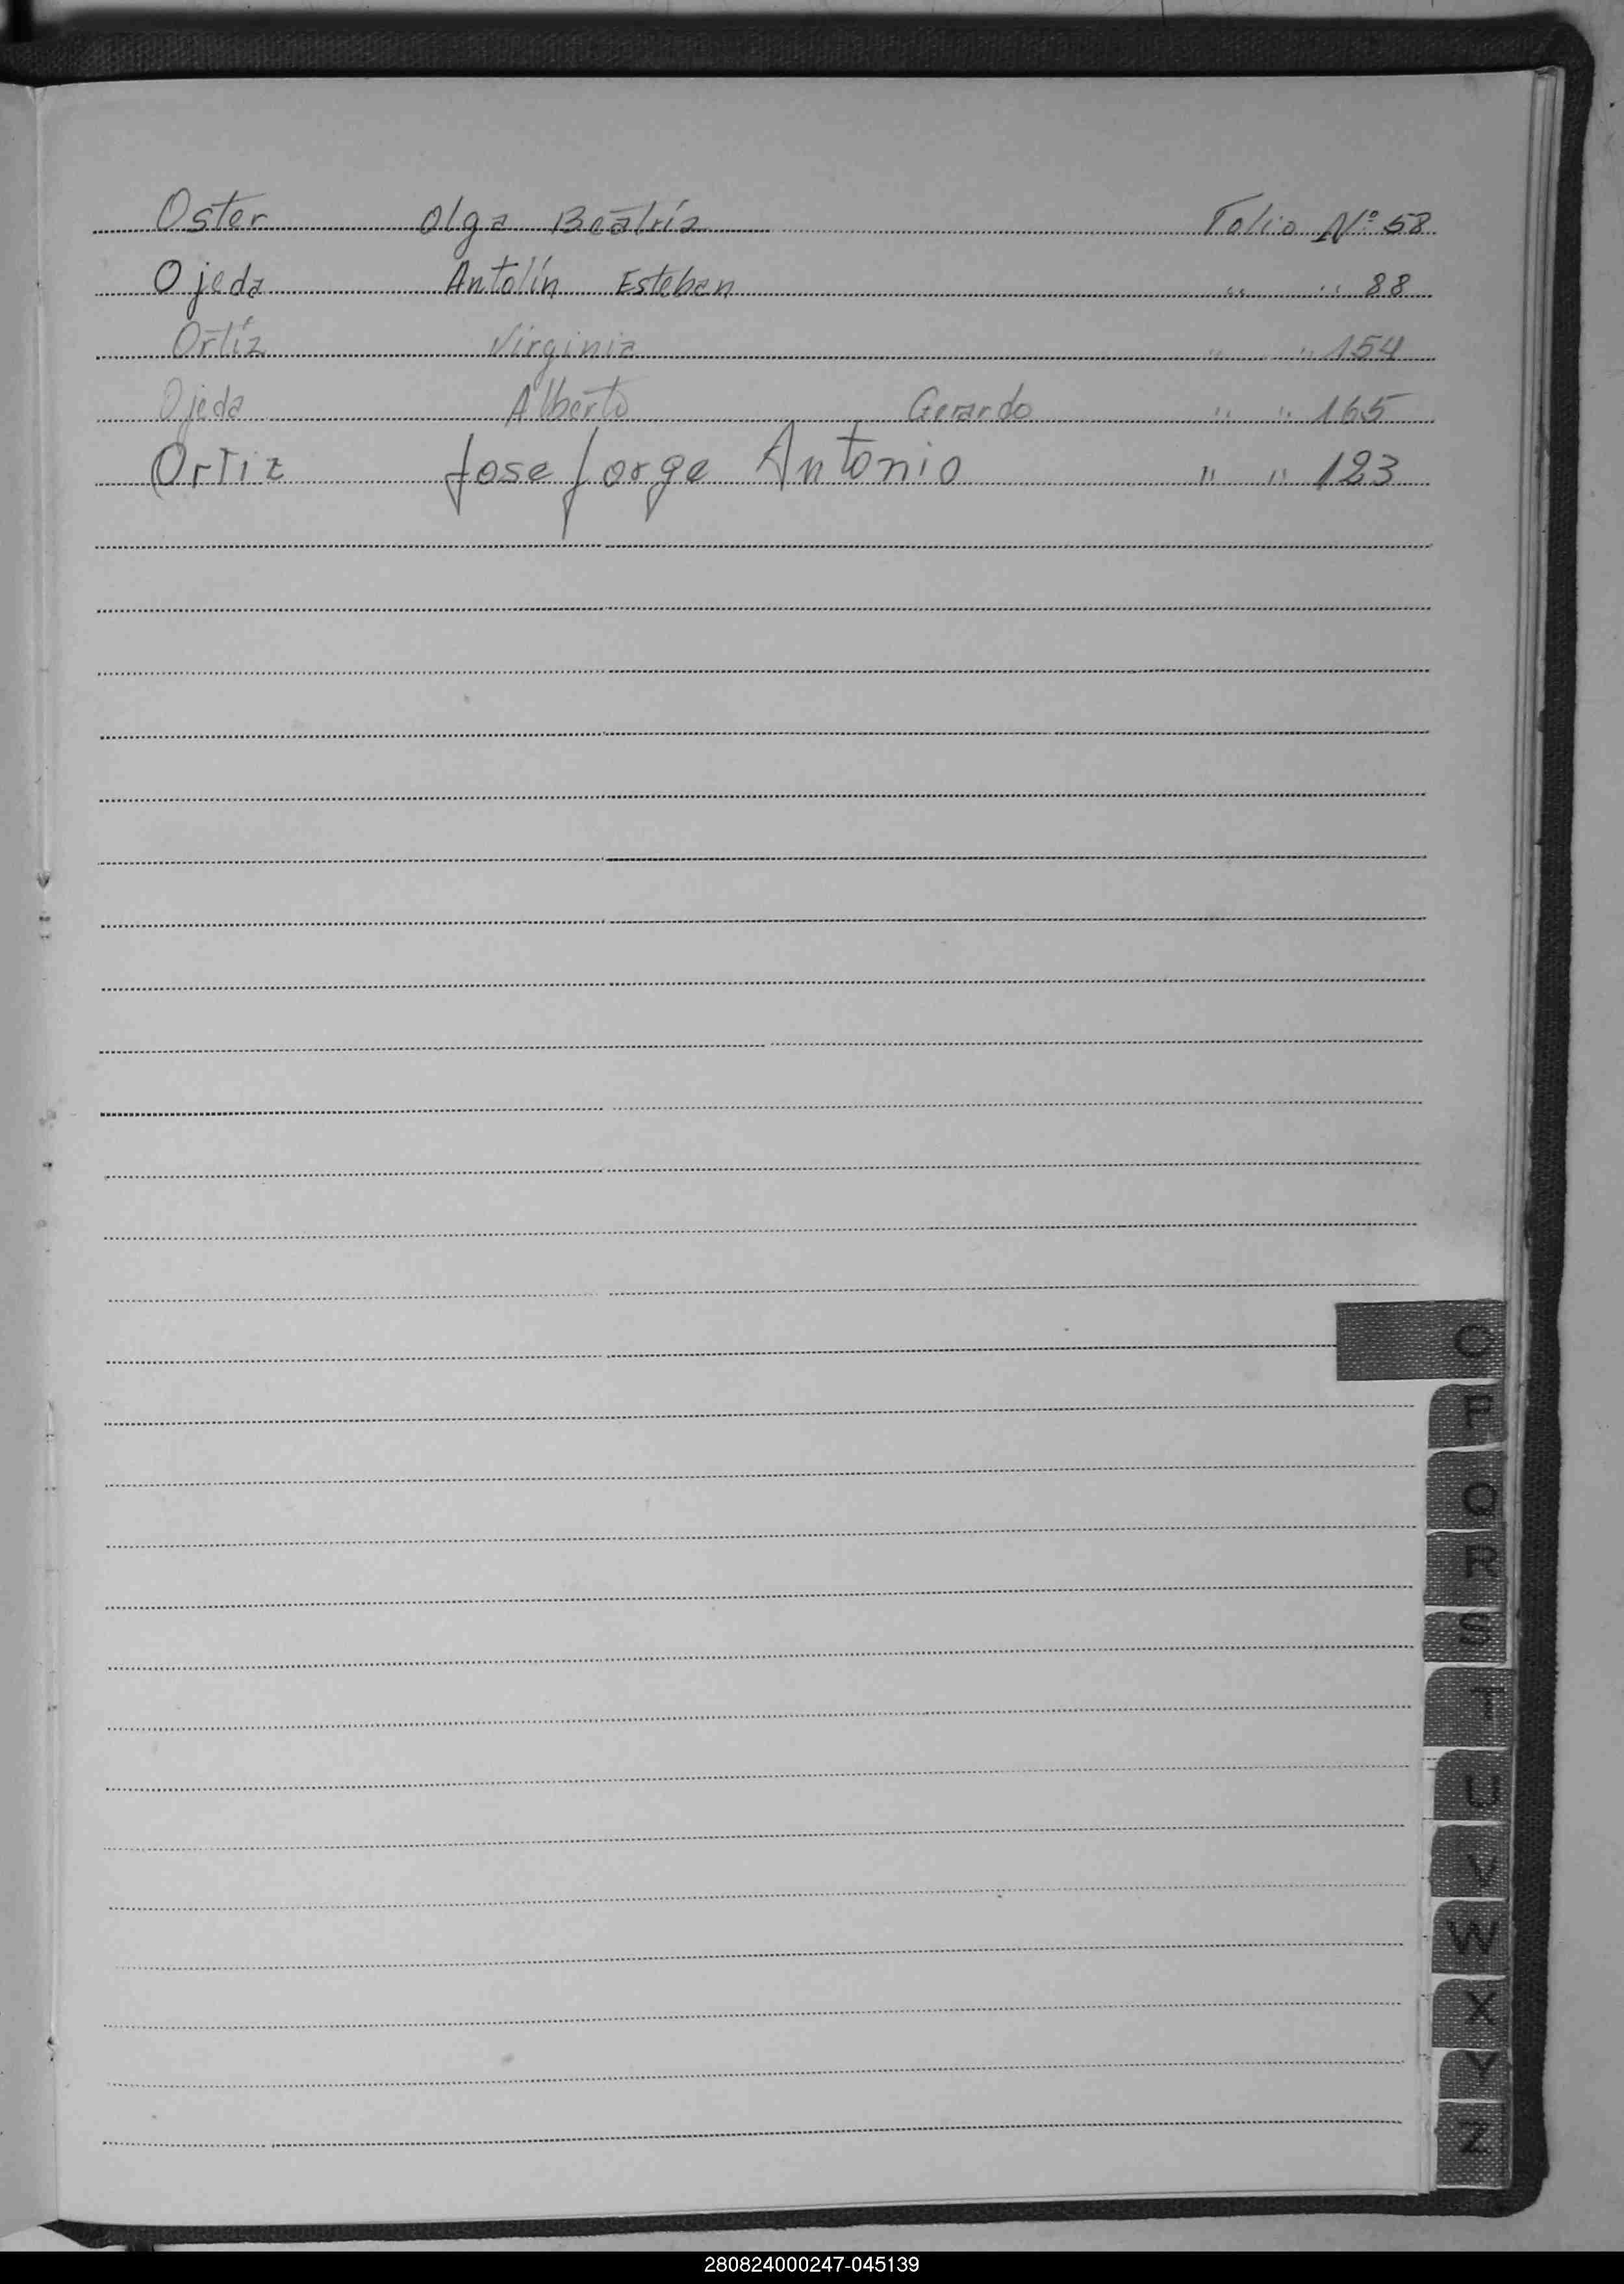 Oster Olga Beatríz Folio Nº 58
Ojeda Antolín Esteban " " 88
Ortíz Virginia " " 154
Ojeda Alberto Gerardo " " 165
Ortiz Jose Jorge Antonio " " 123
O
P
Q
R
S
T
U
V
W
X
Y
Z
280824000247-045139